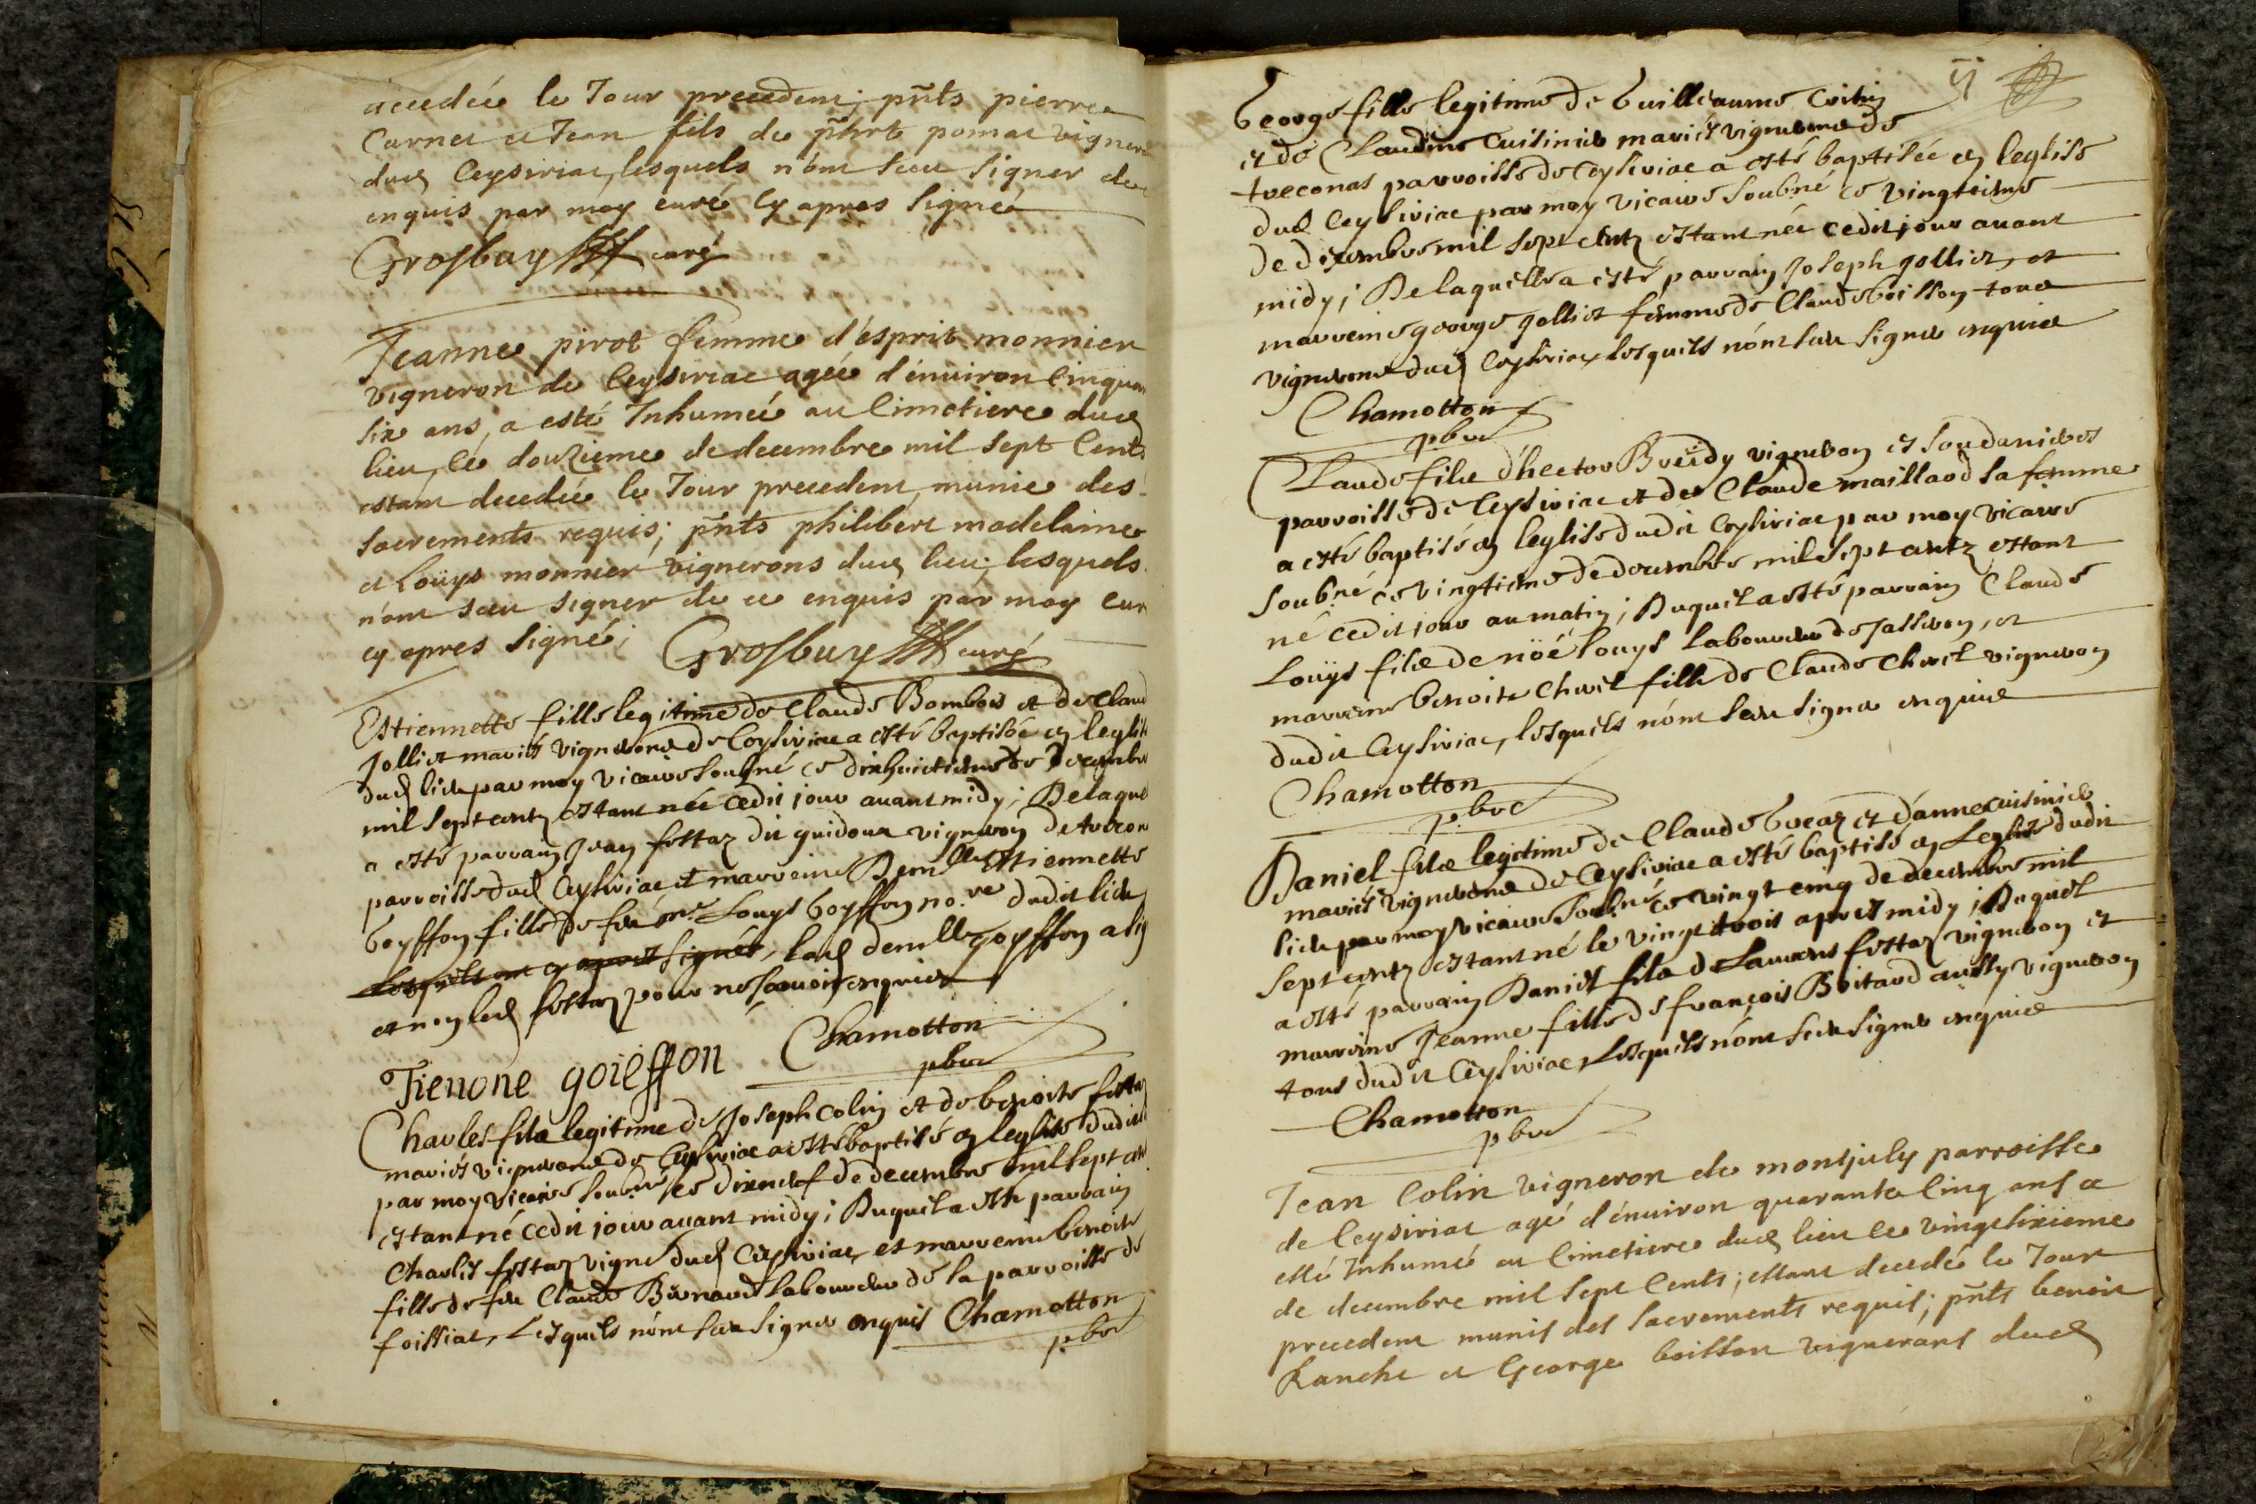 decedée le Jour precedent; pñts pierre
Carnet et Jean fils de phrt pomat vigner
dud Ceysiriat, lesquels n'ont sceu signer de
enquis par moy curé cy apres signé
Grosbuy curé
Jeanne pirot femme d'esprit monnier
vigneron de Ceysiriat agée d'enuiron Cinquan
six ans, a esté Inhumée au Cimetiere dud
lieu, le douzieme de decembre mil sept Cents
estant decedée le Jour precedent, munie des
sacrements requis; pñts philibert madelaine
et Loüys monnier vignerons dud lieu; lesquels
n'ont sceu signer de ce enquis par moy cur
cy apres signé; Grosbuy curé
Estiennette fille legitime de Claude Bombois et de Claud
Jolliet mariés vignerons de Ceysiriac a esté baptisée en leglise
dud lieu par moy vicaire soubné ce dixhuictieme de decembre
mil sept centz estant née cedit jour auant midy; De laquel
a esté parrain Jean fostaz dit guidoux vigneron de treconas
parroisse dud Ceysiriac et marreine Demlle Estiennette
Goyffon fille de feu mr Louys Goyffon no.re dudit lieu
lesquels ont cy apres signés, lad demlle goyffon a sig
et non led fostaz pour ne sçauoir enquis
Chamotton
pbre
Tienone goieffon
Charles fils legitime de Joseph Colin et de benoite fostaz
mariés vignerons de Ceysiriac a esté baptisé en leglise dudit
par moy vicaire soubné ce dixneuf de decembre mil sept cen
estant né cedit jour auant midy; Duquel a esté parrain
Charles fostaz vigne. dud Ceysiriac, et marreine benoite
fille de feu Claude Bernard laboureur de la parroisse de
foissiat, Lesquels n'ont sceu signer enquis Chamotton
pbre
George fille legitime de Guilleaume Coitin
et de Claudine Cuisinier mariés vignerons de
treconas parroisse de Ceysiriac a esté baptisée en leglise
dud Ceysiriac par moy vicaire soubné ce vingtieme
de decembre mil sept centz estant née cedit jour auant
midy; De laquelle a esté parrain Joseph Jolliet, et
marreine george Jolliet femme de Claude boisson tous
vignerons dud Ceysiriac, lesquels n'ont sceu signer enquis
Chamotton
pbre
Claude fils d'hector Breüdy vigneron et
parroisse de Ceysiriac et de Claude maillard sa femme
a esté baptisé en leglise dudit Ceysiriac par moy vicaire
soubné ce vingtieme de decembre mil sept centz estant
né cedit jour au matin; Duquel a esté parrain Claude
Loüys fils de nöé Louys laboureur de Jasseron, et
marreine benoite Chuit fille de Claude Chuit vigneron
dudit Ceysiriac, lesquels n'ont sceu signer enquis
Chamotton
pbre
Daniel fils legitime de Claude Goeaz et d'anne cuisinier
mariés vignerons de Ceysiriac a esté baptisé en Leglise dudit
lieu par moy vicaire soubné ce vingt cinq de decembre mil
sept centz estant né le vingt trois apres midy; Duquel
a esté parrain Daniel fils de Laurens fostaz vigneron et
marreine Jeanne fille de françois Boitard aussy vigneron
tous dudit Ceysiriac, Lesquels n'ont sceu signer enquis
Chamotton
pbre
Jean Colin vigneron de montjuly parroisse
de Ceysiriat agé d'enuiron quarante Cinq ans a
esté Inhumé au Cimetiere dud lieu le vingtsixieme
de decembre mil sept Cents; estant decedé le Jour
precedent munis des sacrements requis; pñts benoit
Ranche et George boisson vignerons dud